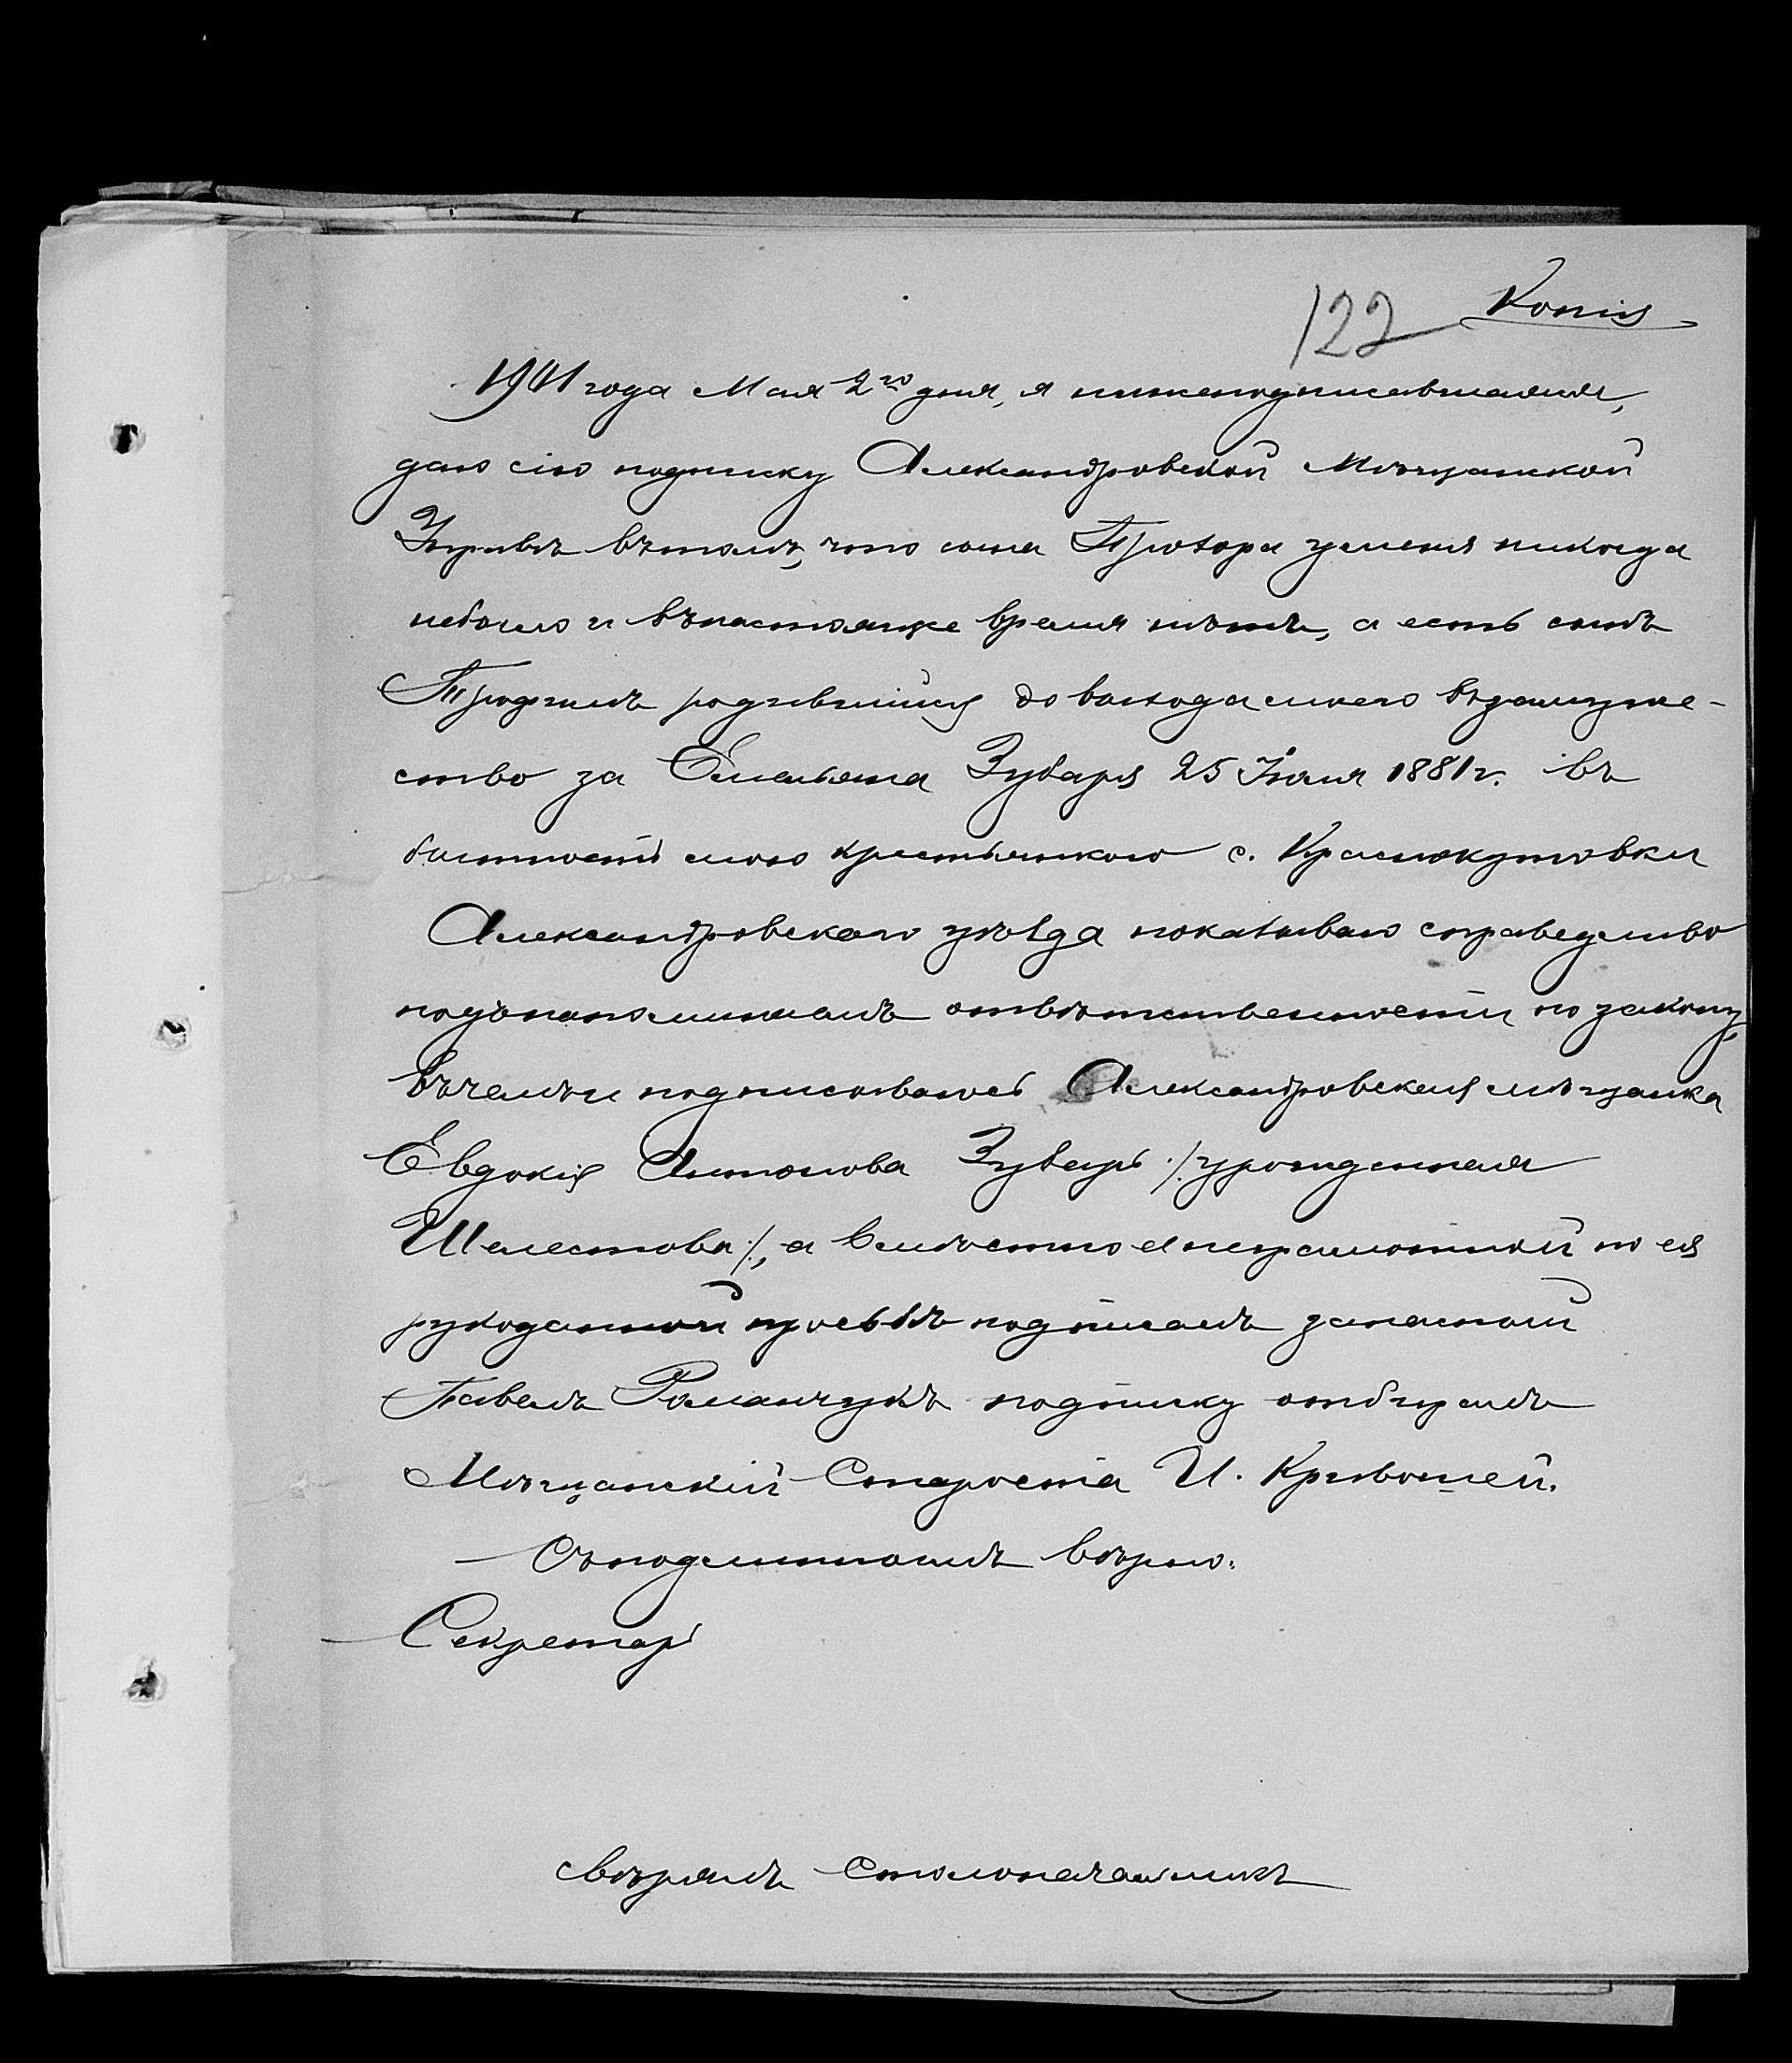 122 Копія
1901 года Мая 2го дня, я нижеподписавшаяся,
даю сію подписку Александровской Мѣщанской
Управѣ вътомъ, что сына Прохора уменя никогда
небыло и внастоящее время нѣтъ, а есть сынъ
Трофимъ родившійся до выхода моего взамуже-
ство за Емельяна Зубаря 25 Іюля 1881 г. въ
бытность мою крестьянкою с. Краснокутовки
Александровскаго уѣзда показываю справедливо
подъопасеніемъ отвѣтственности по закону,
вчемъ и подписываюсь Александровская мѣщанка
Евдокія Антонова Зубарь /: урожденная
Шелестова :/, а вмѣсто ея неграмотной по ея
рукоданной просьбѣ подписалъ запасной
Павелъ Романчукъ подписку отбиралъ
Мѣщанскій Староста И. Кривошей.
Съподлиннымъ вѣрно:
Секретарь
свѣрялъ Столоначальникъ